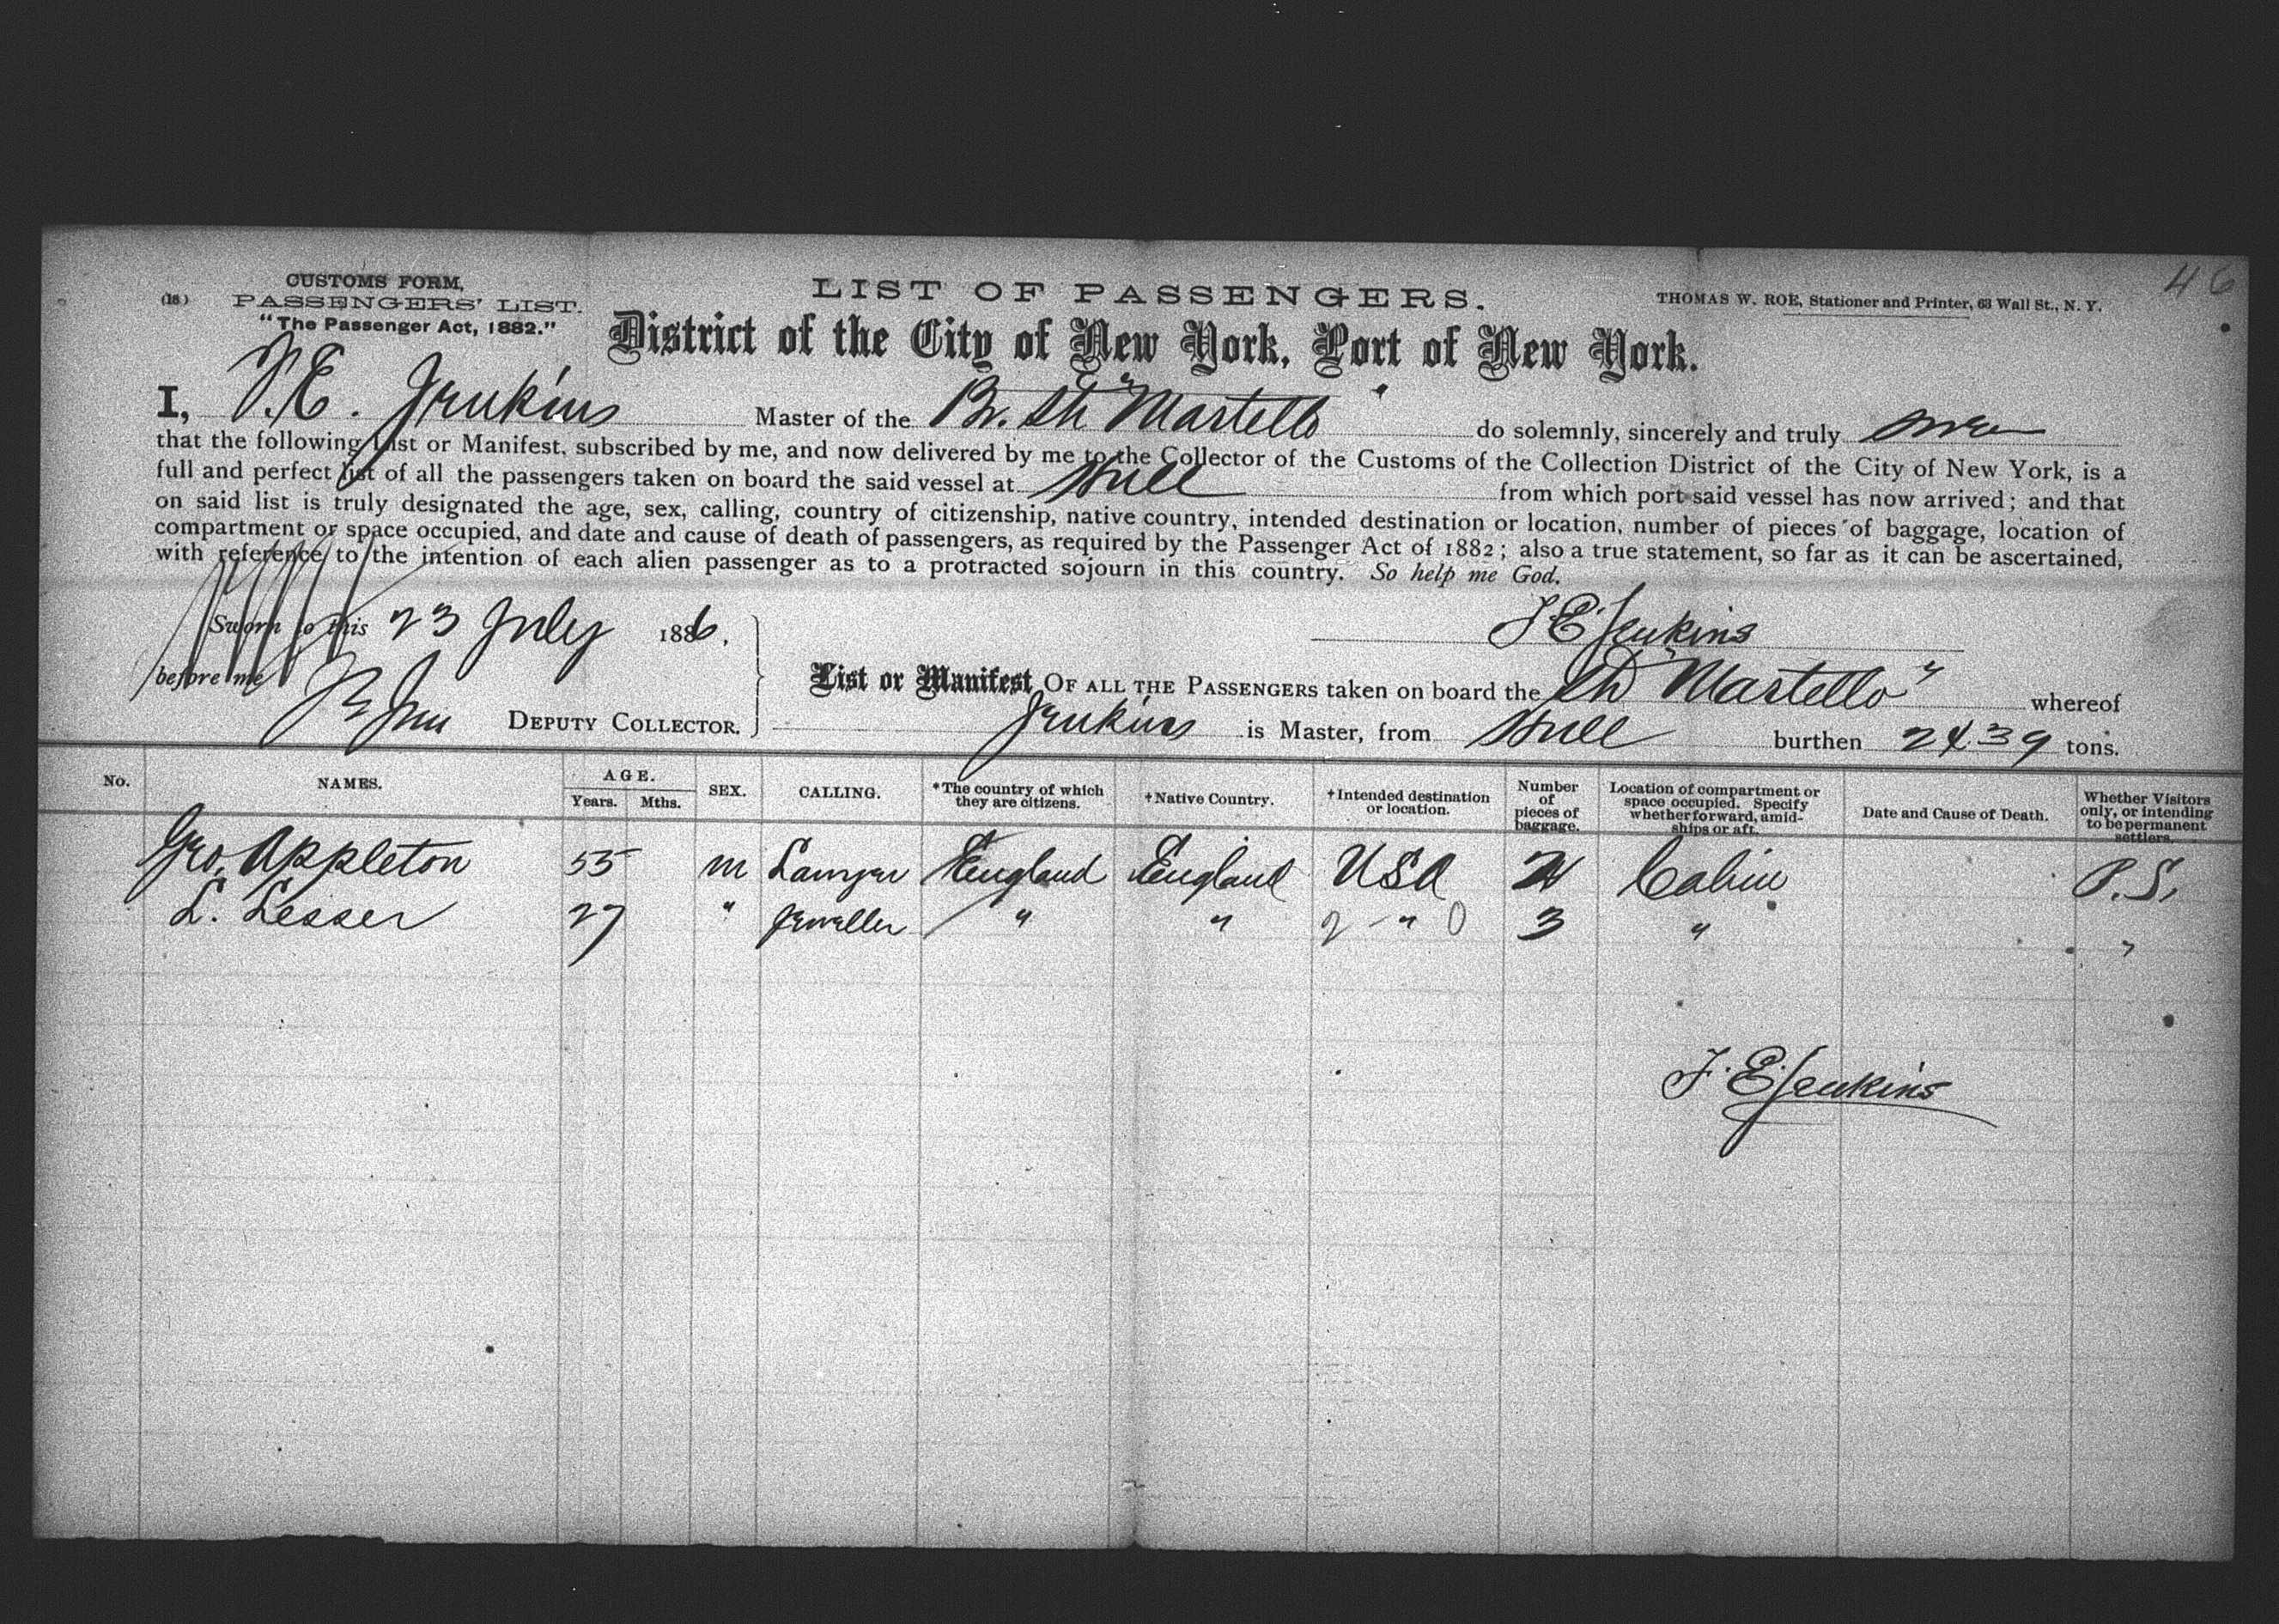 46
CUSTOMS FORM,
(18.) PASSENGERS' LIST.
"The Passenger Act, 1882."
LIST OF PASSENGERS.
THOMAS W. ROE, Stationer and Printer, 63 Wall St., N. Y.
District of the City of New York, Port of New York.
I, F.E. Jenkins Master of the Br. Str "Martello" do solemnly, sincerely and truly swear
that the following List or Manifest, subscribed by me, and now delivered by me to the Collector of the Customs of the Collection District of the City of New York, is a
full and perfect list of all the passengers taken on board the said vessel at Hull from which port said vessel has now arrived; and that
on said list is truly designated the age, sex, calling, country of citizenship, native country, intended destination or location, number of pieces of baggage, location of
compartment or space occupied, and date and cause of death of passengers, as required by the Passenger Act of 1882; also a true statement, so far as it can be ascertained,
with reference to the intention of each alien passenger as to a protracted sojourn in this country. So help me God.
Sworn to this 23 July 1886,
F. E. Jenkins
before me
DEPUTY COLLECTOR.
List or Manifest OF ALL THE PASSENGERS taken on board the Str "Martello" whereof
Jenkins is Master, from Hull burthen 2439 tons.
No. NAMES. AGE. Years. Mths. SEX. CALLING. *The country of which they are citizens. †Native Country. †Intended destination or location. Number of pieces of baggage. Location of compartment or space occupied. Specify whether forward, amidships or aft. Date and Cause of Death. Whether Visitors only, or intending to be permanent settlers.
Geo. Appleton 55 m Lawyer England England USA Cabin P.S.
L. Lesser 27 " Jeweller " " " 3 " "
F. E. Jenkins